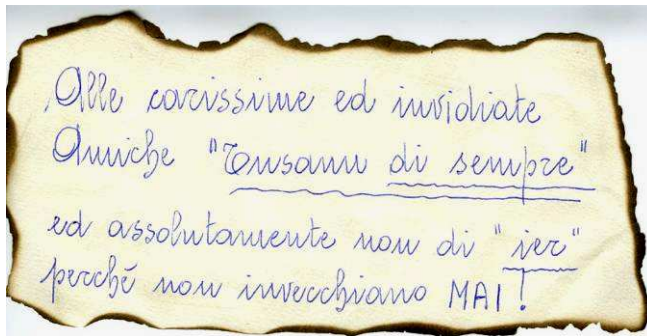 Alle carissime ed invidiate
Amiche "Tusann di sempre"
ed assolutamente non di "ier"
perché non invecchiano MAI!